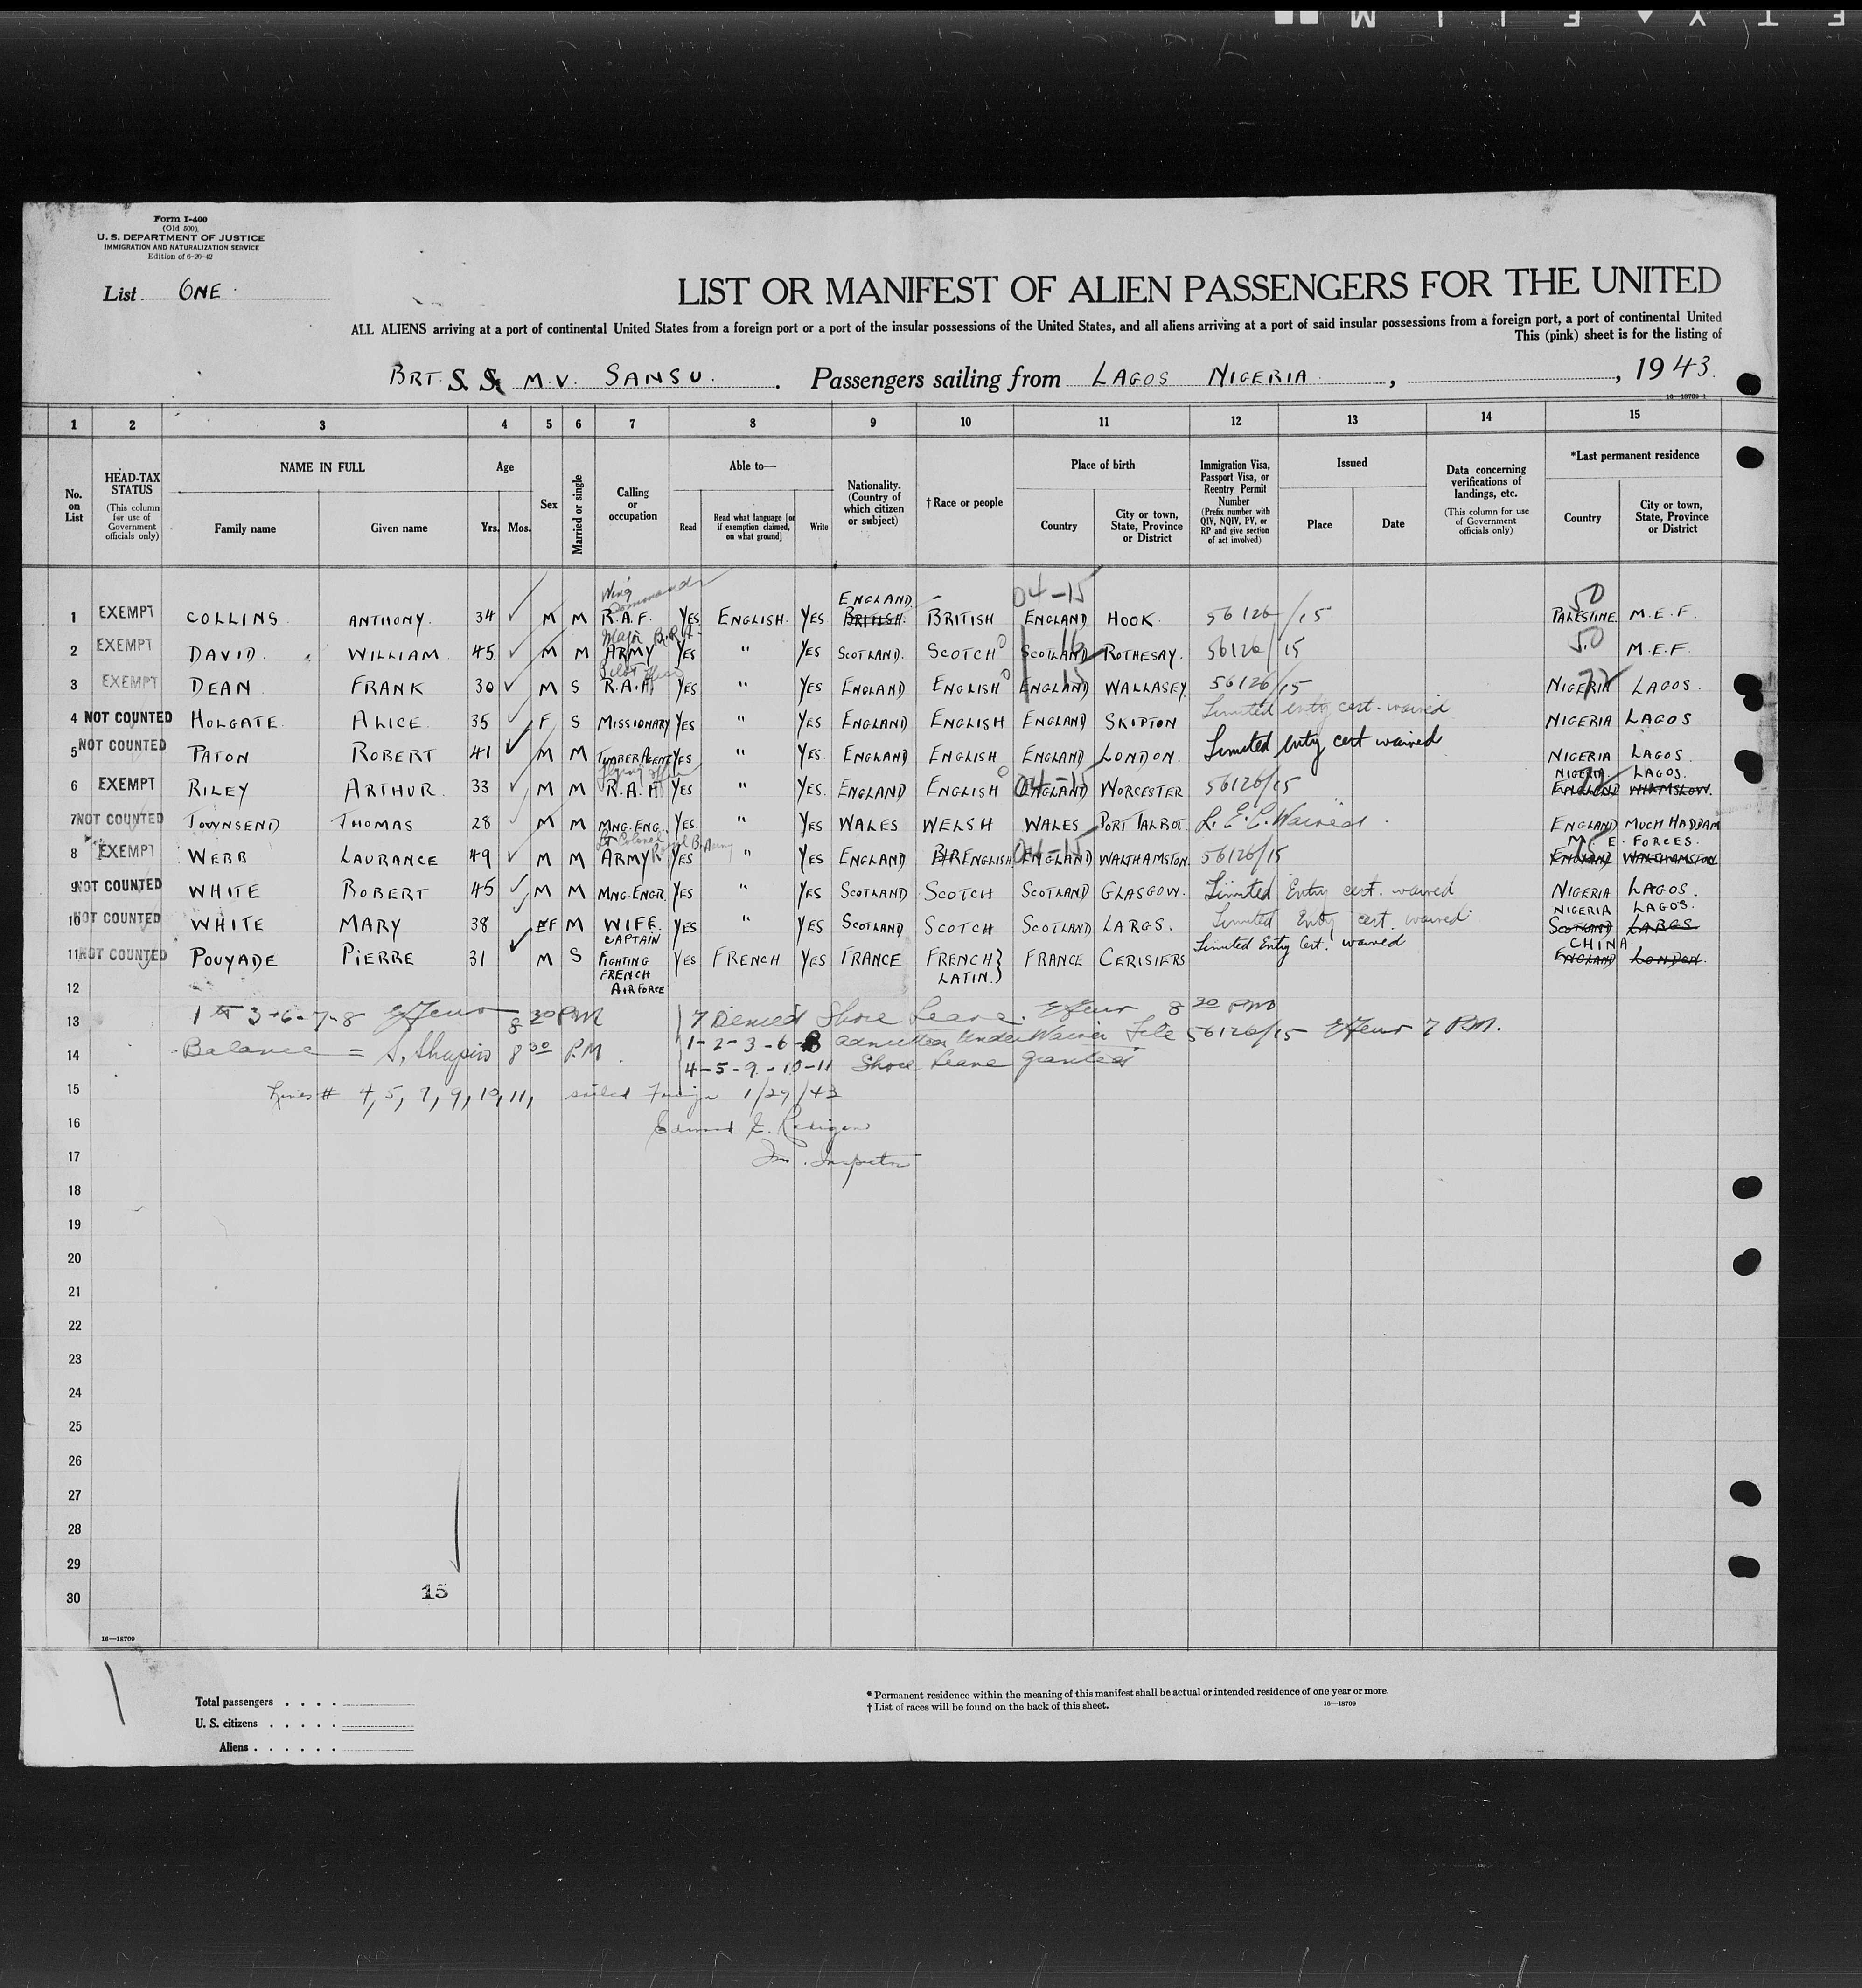 Form I-400
(Old 500)
U. S. DEPARTMENT OF JUSTICE
IMMIGRATION AND NATURALIZATION SERVICE
Edition of 6-20-42
List ONE
LIST OR MANIFEST OF ALIEN PASSENGERS FOR THE UNITED
ALL ALIENS arriving at a port of continental United States from a foreign port or a port of the insular possessions of the United States, and all aliens arriving at a port of said insular possessions from a foreign port, a port of continental United
This (pink) sheet is for the listing of
BRT. S. S. M.V. SANSU. Passengers sailing from LAGOS NIGERIA, , 1943.
16—18709-1
1 2 3 4 5 6 7 8 9 10 11 12 13 14 15
No. on List
HEAD-TAX STATUS (This column for use of Government officials only)
NAME IN FULL Family name Given name
Age Yrs. Mos.
Sex
Married or single
Calling or occupation
Able to— Read Read what language [or if exemption claimed, on what ground] Write
Nationality. (Country of which citizen or subject)
†Race or people
Place of birth Country City or town, State, Province or District
Immigration Visa, Passport Visa, or Reentry Permit Number (Prefix number with QIV, NQIV, PV, or RP and give section of act involved)
Issued Place Date
Data concerning verifications of landings, etc. (This column for use of Government officials only)
*Last permanent residence Country City or town, State, Province or District
1 EXEMPT COLLINS ANTHONY. 34 M M Wing Commander R.A.F. YES ENGLISH. YES ENGLAND BRITISH. BRITISH 04-15 ENGLAND HOOK. 56126/15 50 PALESTINE M.E.F.
2 EXEMPT DAVID. WILLIAM 45 M M Major B.R.A. ARMY YES " YES SCOTLAND. SCOTCH 16 SCOTLAND ROTHESAY. 56126/15 50 M.E.F.
3 EXEMPT DEAN FRANK 30 M S Pilot Officer R.A.F. YES " YES ENGLAND ENGLISH 15 ENGLAND WALLASEY 56126/15 NIGERIA LAGOS.
4 NOT COUNTED HOLGATE. ALICE. 35 F S MISSIONARY YES " YES ENGLAND ENGLISH ENGLAND SKIPTON Limited entry cert. waived NIGERIA LAGOS
5 NOT COUNTED PATON ROBERT 41 M M TIMBER AGENT YES " YES. ENGLAND ENGLISH ENGLAND LONDON. Limited entry cert waived NIGERIA LAGOS.
6 EXEMPT RILEY ARTHUR. 33 M M Flying officer R.A.F YES " YES. ENGLAND ENGLISH 04-15 ENGLAND WORCESTER 56126/15 NIGERIA. LAGOS. ENGLAND WILMSLOW.
7 NOT COUNTED TOWNSEND THOMAS 28 M M MNG. ENG. YES. " YES WALES WELSH WALES PORT TALBOT. L. E. C. Waived. ENGLAND MUCH HADDAM
8 EXEMPT WEBB LAURANCE 49 M M Lt Colonel Royal B. Army ARMY YES " YES ENGLAND BR ENGLISH 04-15 ENGLAND WALTHAMSTON. 56126/15 M. E. FORCES. ENGLAND WALTHAMSTON
9 NOT COUNTED WHITE ROBERT 45 M M MNG. ENGR. YES " YES SCOTLAND SCOTCH SCOTLAND GLASGOW. Limited Entry cert. waived NIGERIA LAGOS.
10 NOT COUNTED WHITE MARY 38 F M WIFE. YES " YES SCOTLAND SCOTCH SCOTLAND LARGS. Limited Entry cert. waived NIGERIA LAGOS. SCOTLAND LARGS
11 NOT COUNTED POUYADE PIERRE 31 M S CAPTAIN FIGHTING FRENCH AIR FORCE YES FRENCH YES FRANCE FRENCH} LATIN.} FRANCE CERISIERS Limited Entry Cert. waived CHINA ENGLAND LONDON.
12
13 1 to 3-6-7-8 8 30 PM 7 Denied Shore Leave. 8 30 PM
1-2-3-6-8 admitted Under Waiver File 56126/15 7 P.M.
14 Balance = S. Shapiro 8 30 P.M.
4-5-9-10-11 Shore Leave granted
15 Lines # 4, 5, 7, 9, 10, 11, sailed Foreign 1/29/43
16 Edward E.
17 Im. Inspector
18
19
20
21
22
23
24
25
26
27
28
29
30
15
16—18709
Total passengers . . . .
U. S. citizens . . . . .
Aliens . . . . . .
* Permanent residence within the meaning of this manifest shall be actual or intended residence of one year or more.
† List of races will be found on the back of this sheet.
16—18709